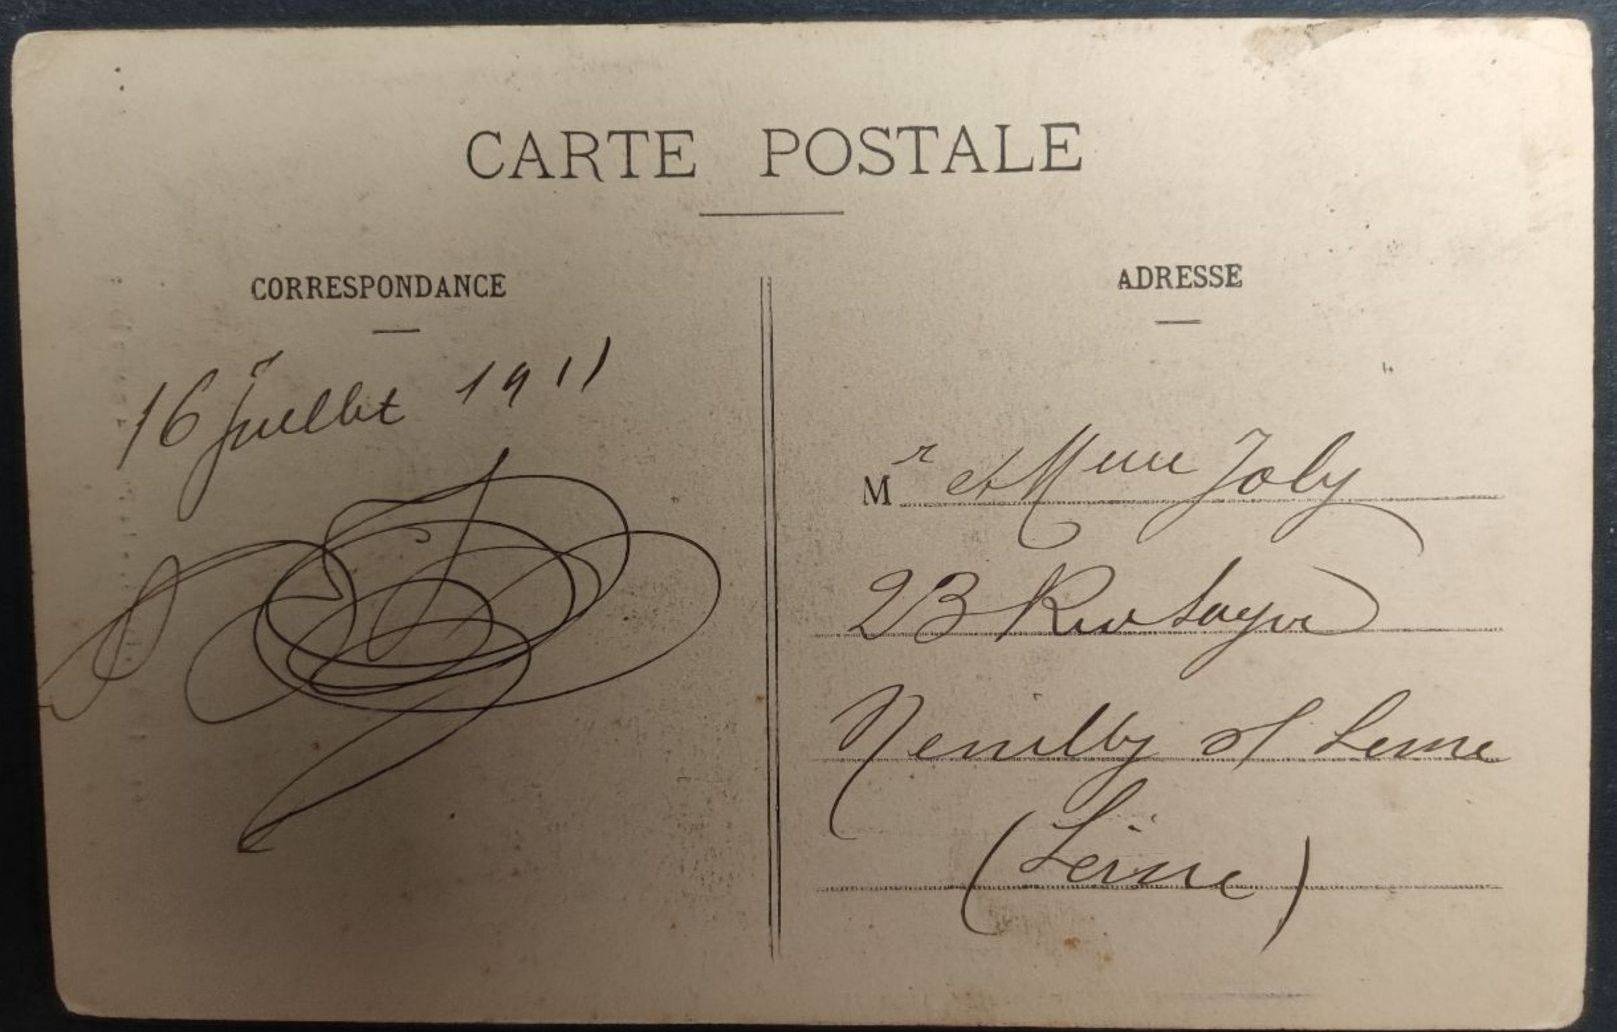 CARTE POSTALE
CORRESPONDANCE
16 Juillet 1911
ADRESSE
Mr et Mme Joly
23 Rue
Neuilly s/ Seine
(Seine)